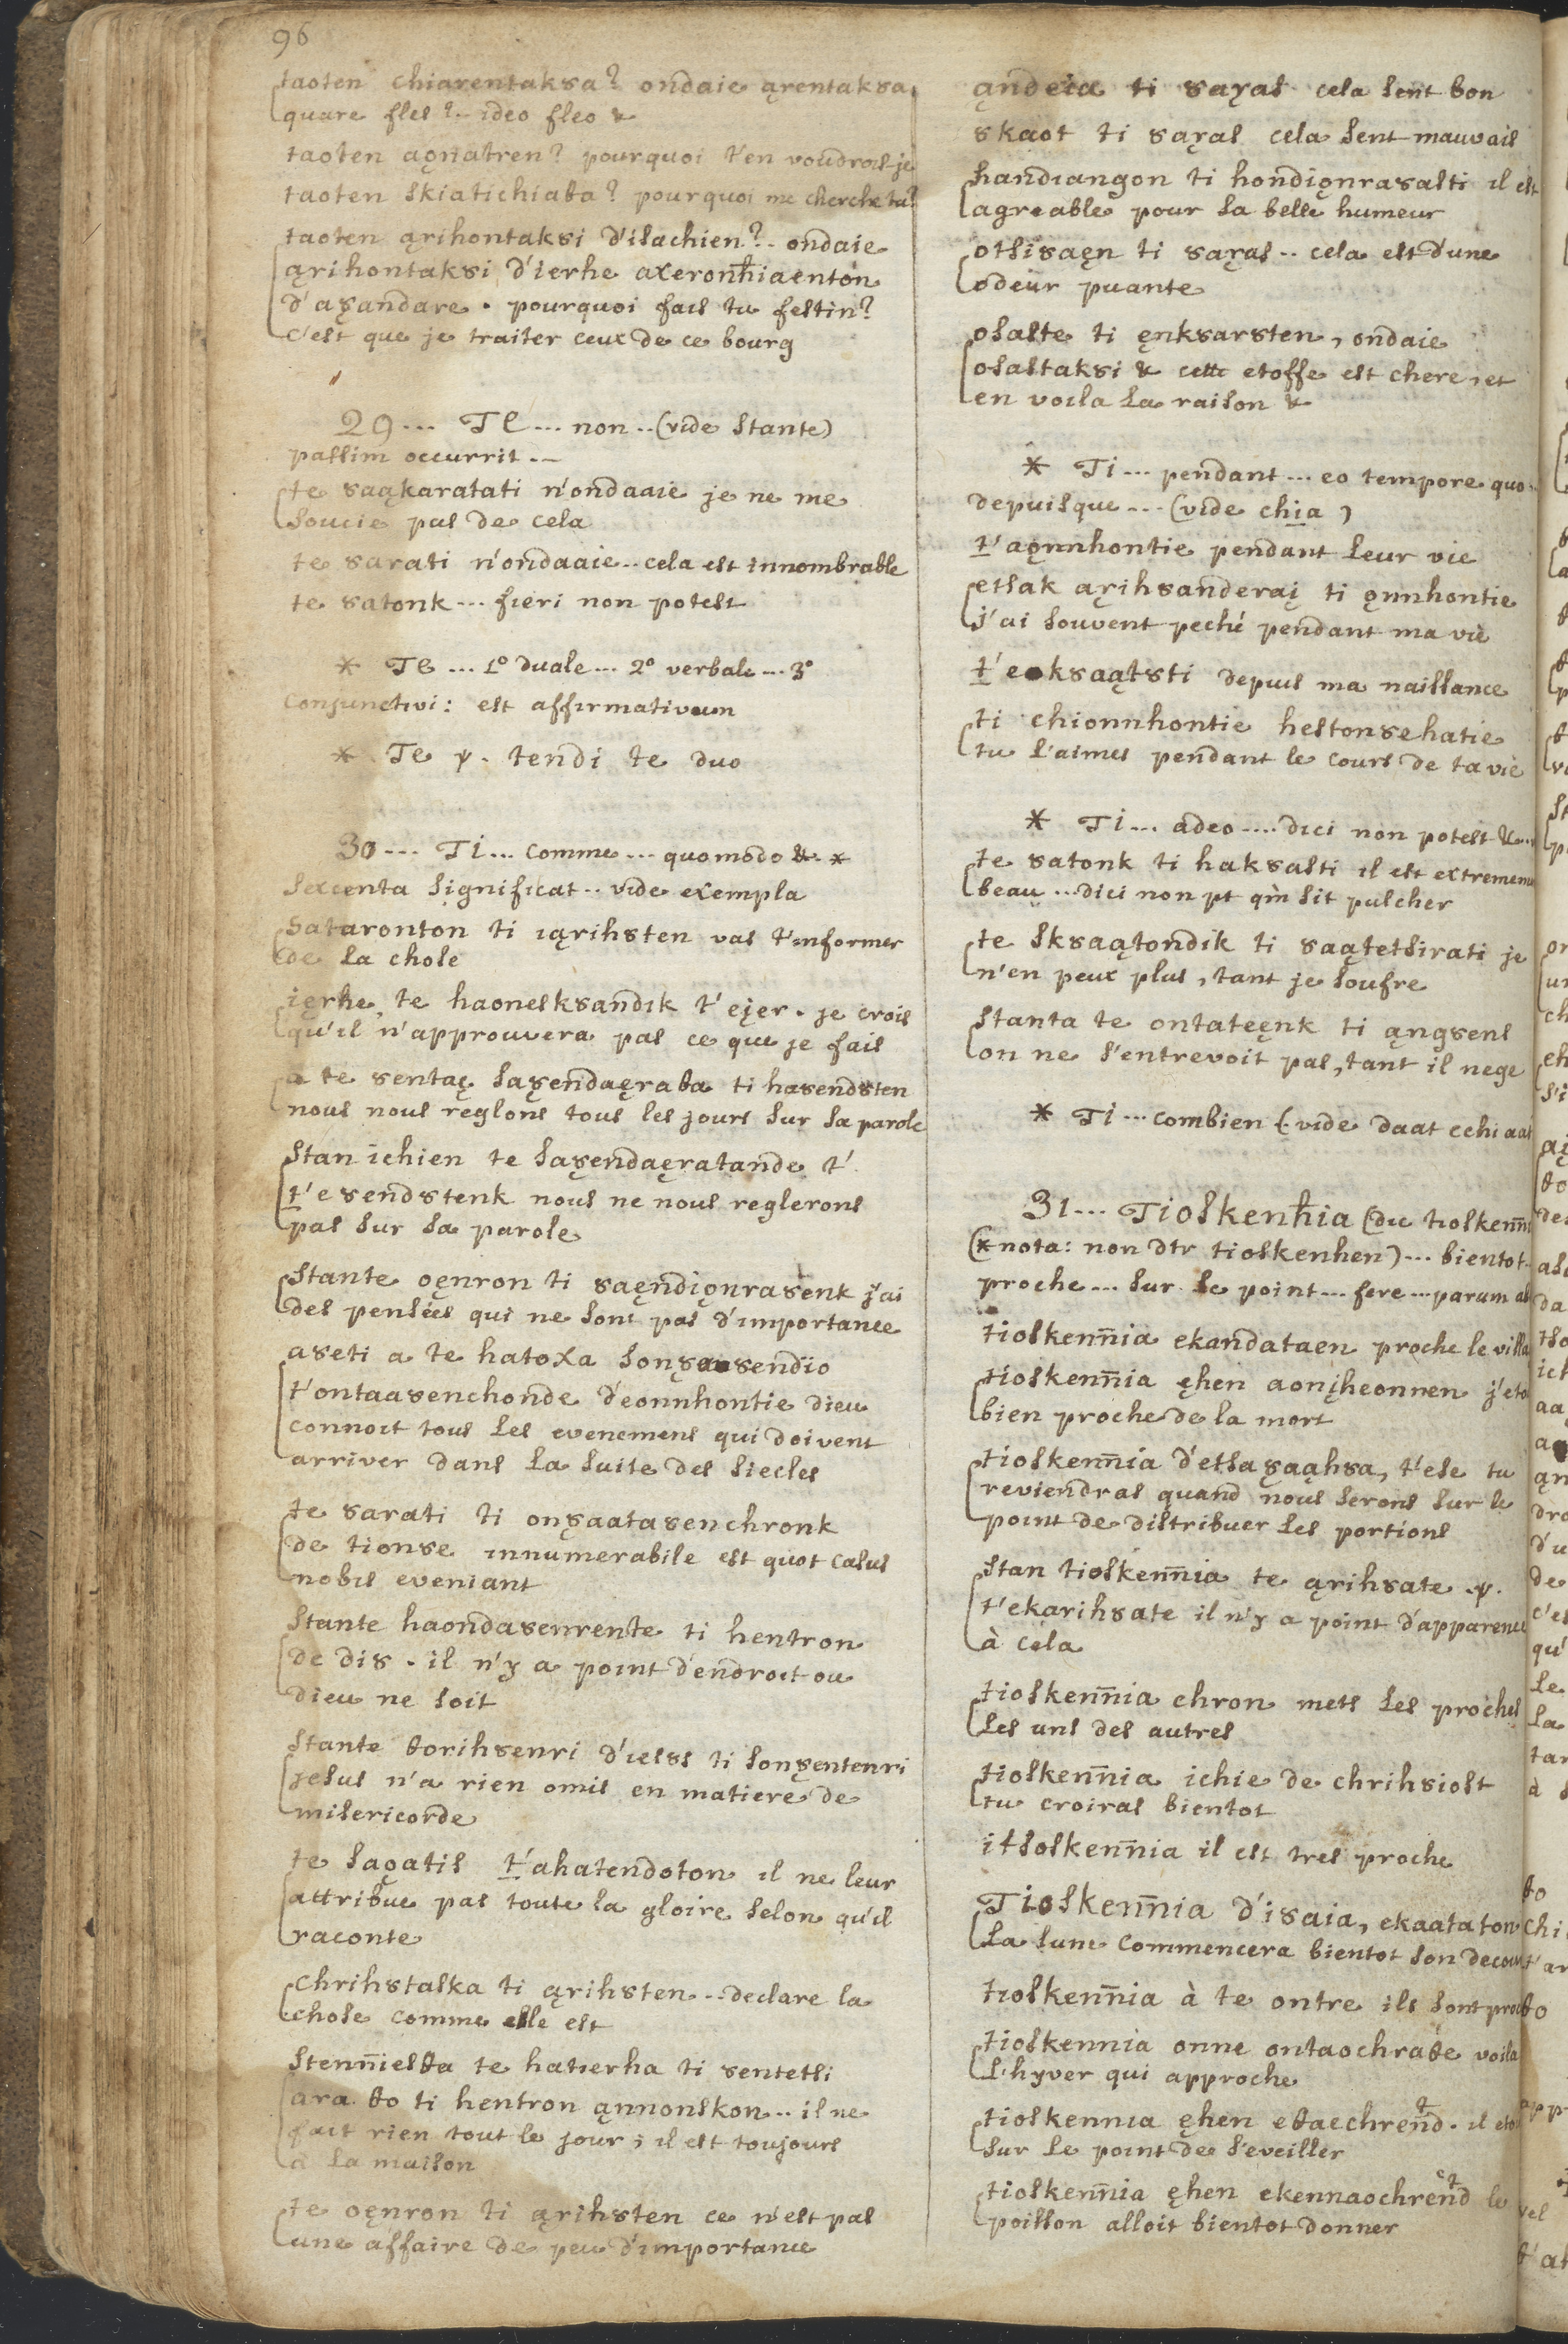 96
taoten chiarentaksa? ondaie ąrentaksa
quare fles? ideo fleo &
taoten aǫnatren? pourquoi t'en voudrois je
taoten skiatichiaba? pourquoi me cherche tu?
taoten ąrihontaksi d'isachien? ondaie
ąrihontaksi d'ierhe axeronhiaenton
d'aȣandare. pourquoi fais tu festin?
c'est que je traiter ceux de ce bourg
29... Te... non..(vide stante)
passim occurrit..
te saąkaratati n'ondaaie je ne me
soucie pas de cela
te sarati n'ondaaie.. cela est innombrable
te satonk... fieri non potest
* Te ... 1º duale... 2º verbale... 3º
conjunctivi: est affirmativum
* Te ... tendi te duo
30--- Ti... comme... quomodo &. *
sexcenta significat.. vide exempla
sataronton ti ıąrihsten vas t'informer
de la chose
ięrhe te haonesksandik t'ejer. je crois
qu'il n'approuvera pas ce que je fais
a te sentaę saȣendaęraba ti hasendsten
nous nous reglons tous les jours sur sa parole
stan ichien te saȣendaęratande t'
t'esendstenk nous ne nous reglerons
pas sur sa parole
stante oęnron ti saęndiǫnrasenk j'ai
des pensées qui ne sont pas d'importance
aseti a te hatoxa sonȣasendio
t'ontaasenchonde d'eonnhontie dieu
connoit tous les evenemens qui doivent
arriver dans la suite des siecles
te sarati ti onȣaatasenchronk
de tionse innumerabile est quot casus
nobis eveniant
stante haondasenrente ti hentron
de dis. il n'y a point d'endroit ou
dieu ne soit
stante borihsenri d'iesȣs ti sonȣentenri
jesus n'a rien omis en matiere de
misericorde
te saǫatis t'ahatendoton il ne leur
attribue pas toute la gloire selon qu'il
raconte
chrihstaska ti ąrihsten.. declare la
chose comme elle est
stenniesba te hatierha ti sentetsi
ara bo ti hentron ąnnonskon.. il ne
fait rien tout le jour; il est toujours
a la maison
te oęnron ti ąrihsten ce n'est pas
une affaire de peu d'importance
ąndeia ti saȣas cela sent bon
skaot ti saȣas cela sent mauvais
handiangon ti hondiǫnrasasti il est
agreable pour sa belle humeur
otsisaęn ti saȣas.. cela est d'une
odeur puante
osaste ti ęnksarsten, ondaie
osastaksi & cette etoffe est chere, et
en voila la raison &
* Ti... pendant... eo tempore quo..
depuisque... (vide chia)
t'aǫnnhontie pendant leur vie
etsak ąrihsanderaį ti ǫnnhontie
j'ai souvent peché pendant ma vie
t'eoksaątsti depuis ma naissance
ti chionnhontie hestonsehatie
tu l'aimes pendant le cours de ta vie
* Ti... adeo.... dici non potest &...
te satonk ti haksasti il est extremem
beau... dici non pt qm̀ sit pulcher
te sksaątondik ti saątetsirati je
n'en peux plus, tant je soufre
stanta te ontateęnk ti ąngsens
on ne s'entrevoit pas, tant il nege
* Ti... combien (vide daat echi aat
31... Tioskenhia (dic tioskenn̄i
(* nota: non dtr tioskenhen)... bientot..
proche... sur le point... fere... parum ab
tioskenn̄ia ekandataen proche le villa
tioskenn̄ia ęhen aonįheonnen j'eto
bien proche de la mort
tioskenn̄ia d'etsaȣaąhsa, t'ese tu
reviendras quand nous serons sur le
point de distribuer les portions
stan tioskenn̄ia te ąrihsate ..
t'ekarihsate il n'y a point d'apparence
à cela
tioskenn̄ia chron mets les proches
les uns des autres
tioskenn̄ia ichie de chrihsiost
tu croiras bientot
itsoskenn̄ia il est tres proche
Tioskenn̄ia d'isaia, ekaataton
la lune commencera bientot son decou
tioskenn̄ia à te ontre ils sont pro
tioskennia onne ontaochrabe voila
l'hyver qui approche
tioskennia ęhen ebaechrend. il eto
sur le point de s'eveiller
tioskenn̄ia ęhen ekennaochrend le
poisson alloit bientot donner